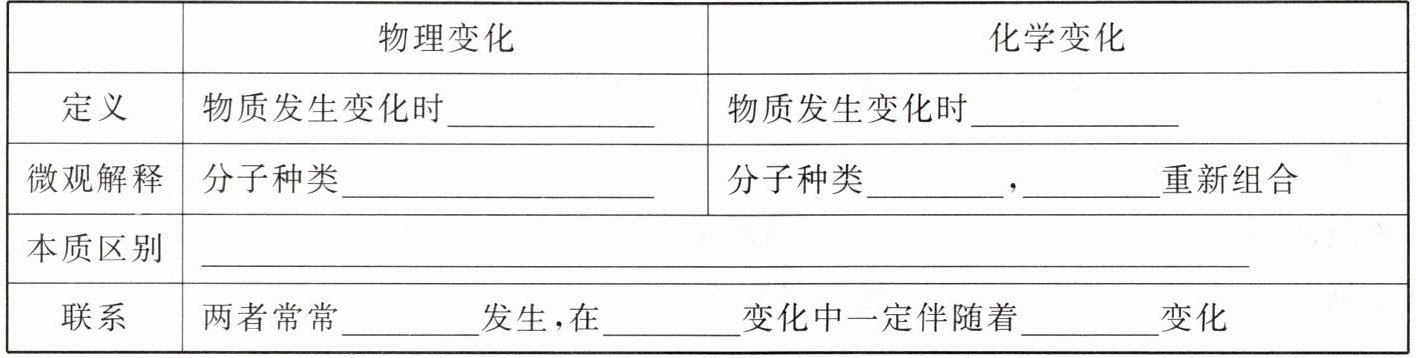 物理变化 化学变化
定义 物质发生变化时____________ 物质发生变化时____________
微观解释 分子种类__________________ 分子种类________,________重新组合
本质区别 ____________________________________________________________
联系 两者常常________发生,在________变化中一定伴随着________变化